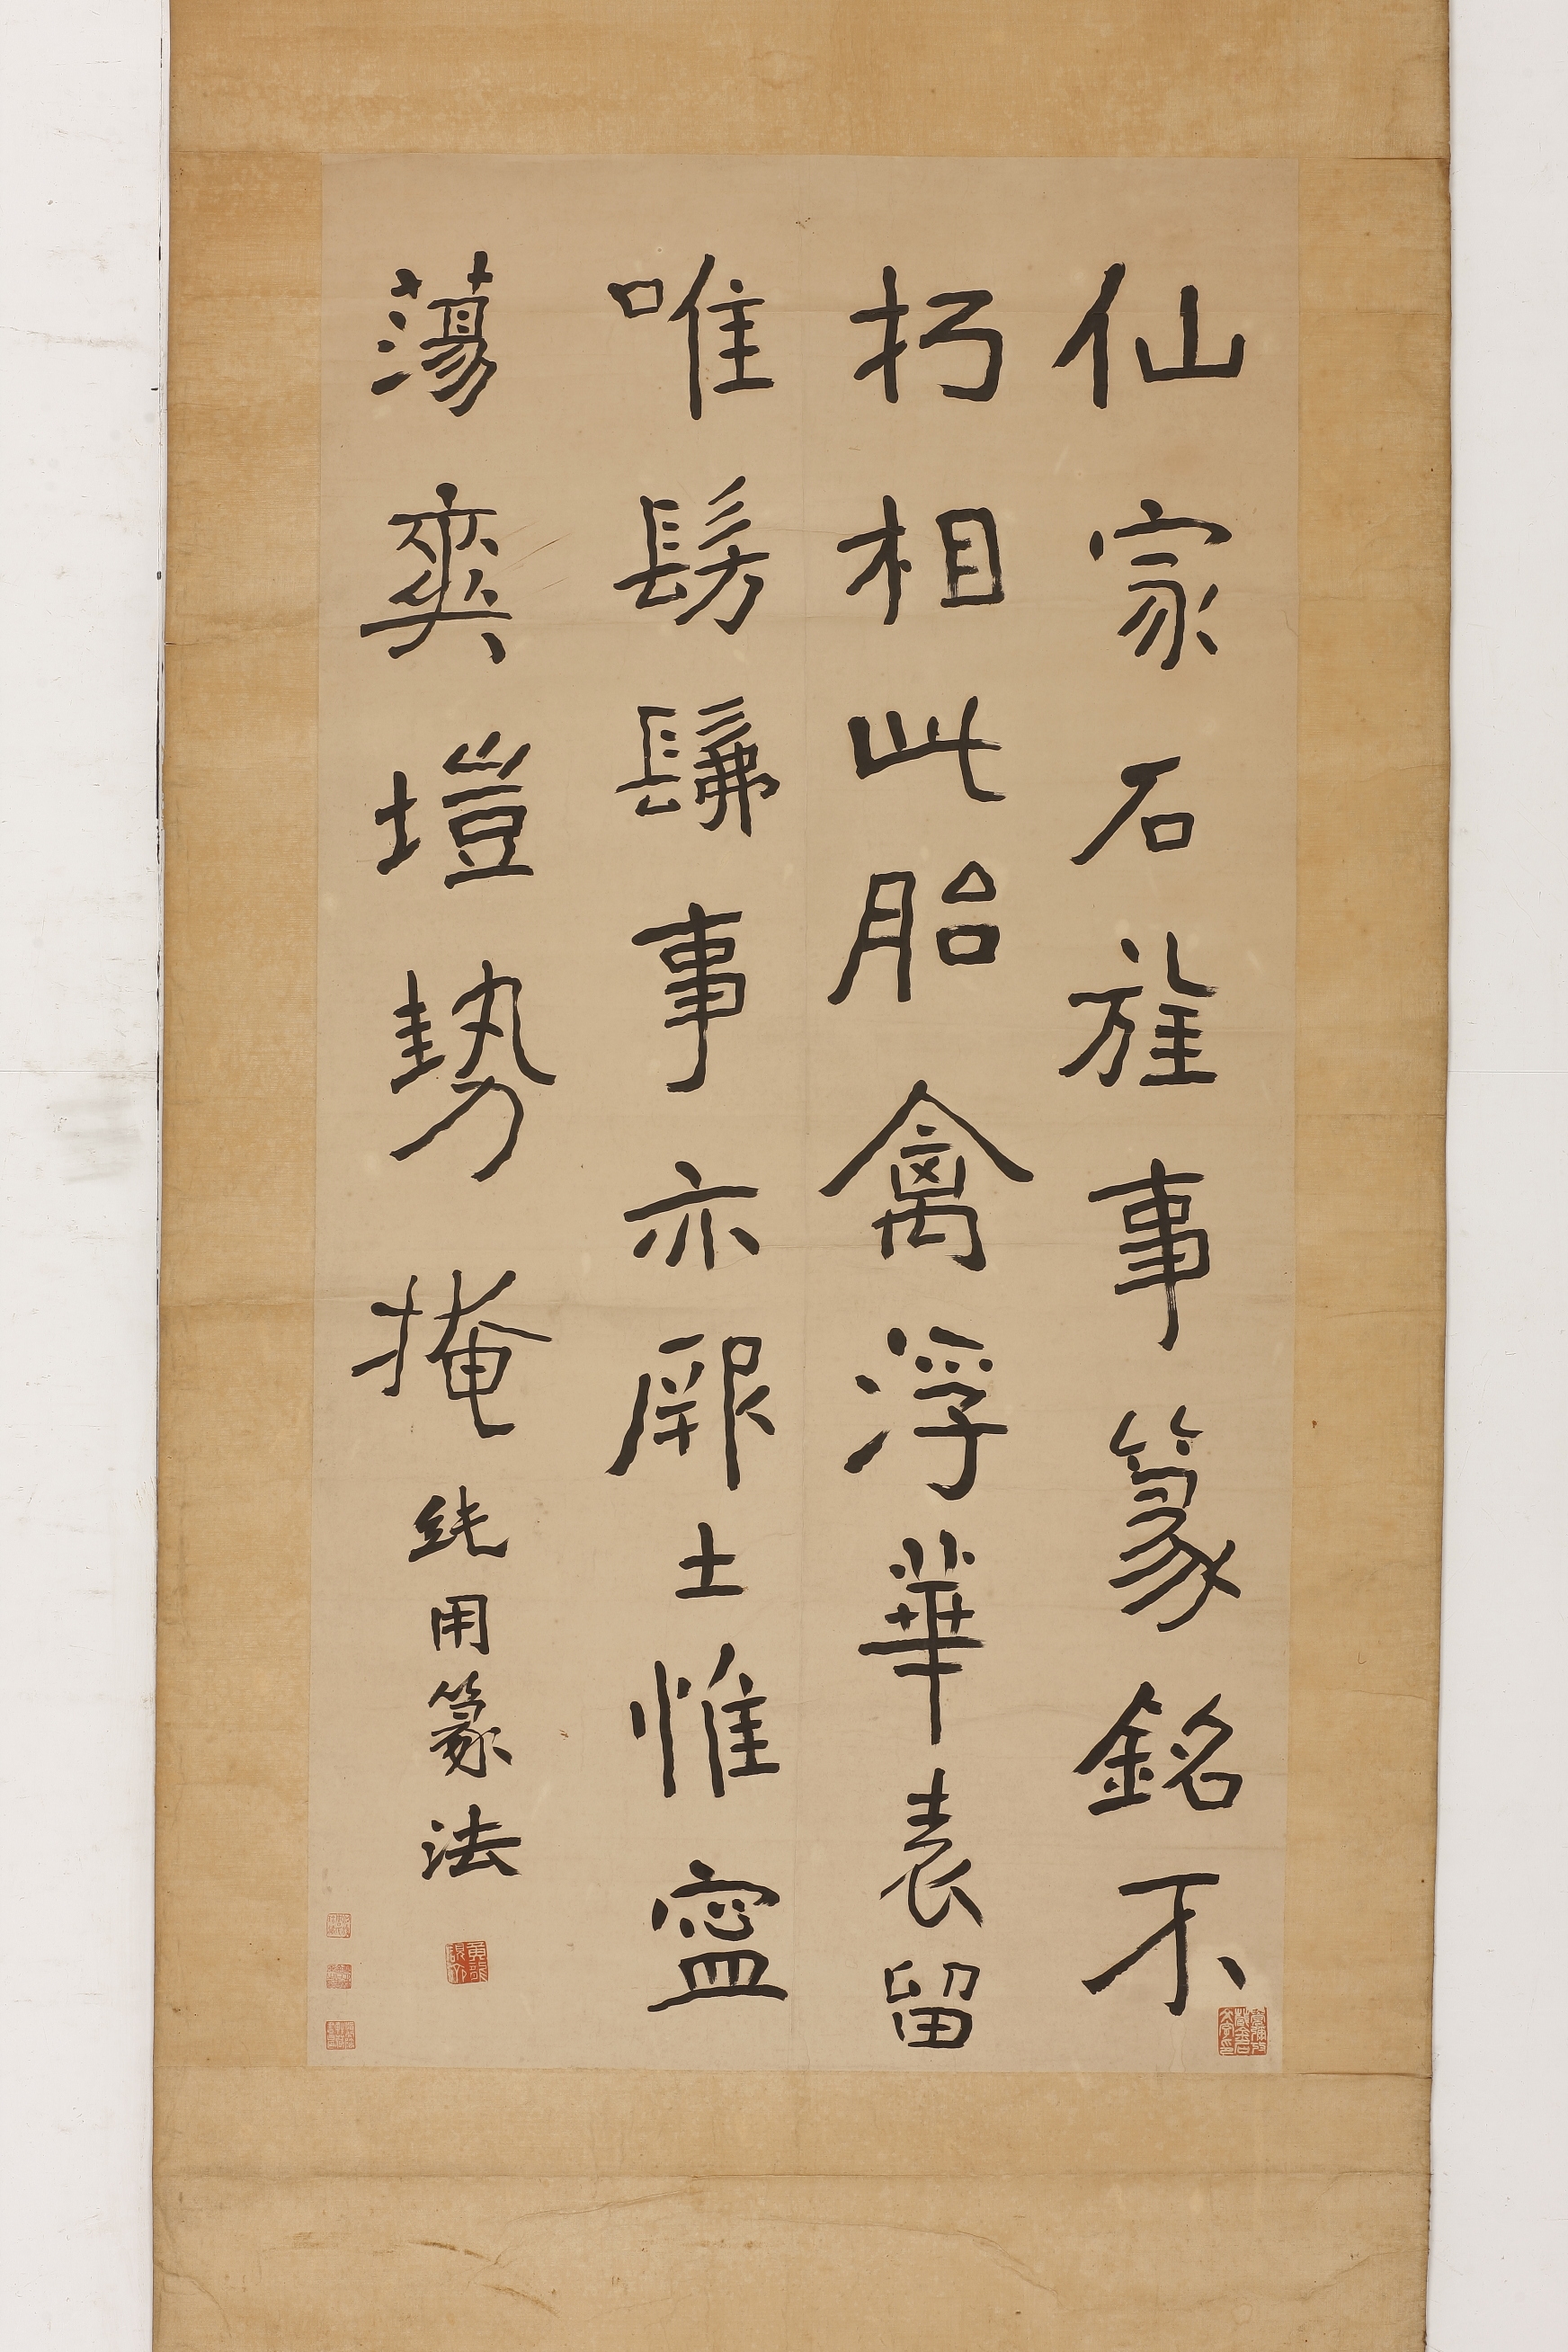 仙家石旌事篆銘不
朽相此胎禽浮華表留
唯髣髴事亦厥土惟寍
蕩爽塏勢掩 純用篆法